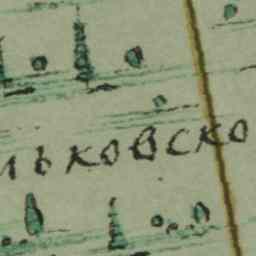 льковско